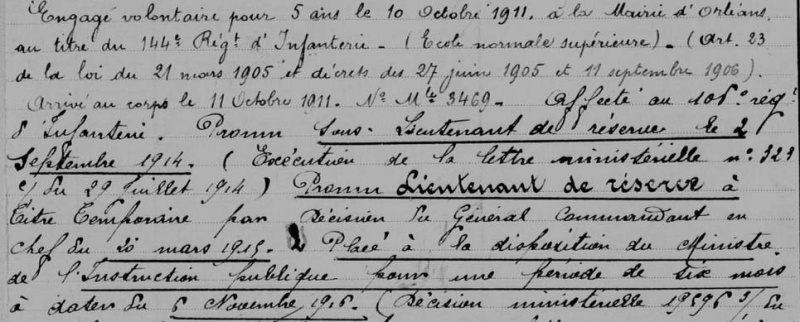 Engagé volontaire pour 5 ans le 10 Octobre 1911. à la Mairie d'Orléans.
au titre du 144e Régt d'Infanterie - (Ecole normale supérieure) - (Art. 23
de la loi du 21 mars 1905 et décrets des 27 juin 1905 et 11 septembre 1906).
Arrivé au corps le 11 Octobre 1911. No Mle 3469. - Affecté au 106e régt
d'Infanterie. Promu Sous-Lieutenant de réserve le 2
Septembre 1914. (Exécution de la lettre ministérielle no 323
c/ du 29 Juillet 1914) Promu Lieutenant de réserve à
titre temporaire par Décision du Général Commandant en
chef du 20 mars 1915. Placé à la disposition du Ministre
de l'Instruction publique pour une période de six mois
à dater du 6 Novembre 1916. (Décision ministérielle 19596 3/ du